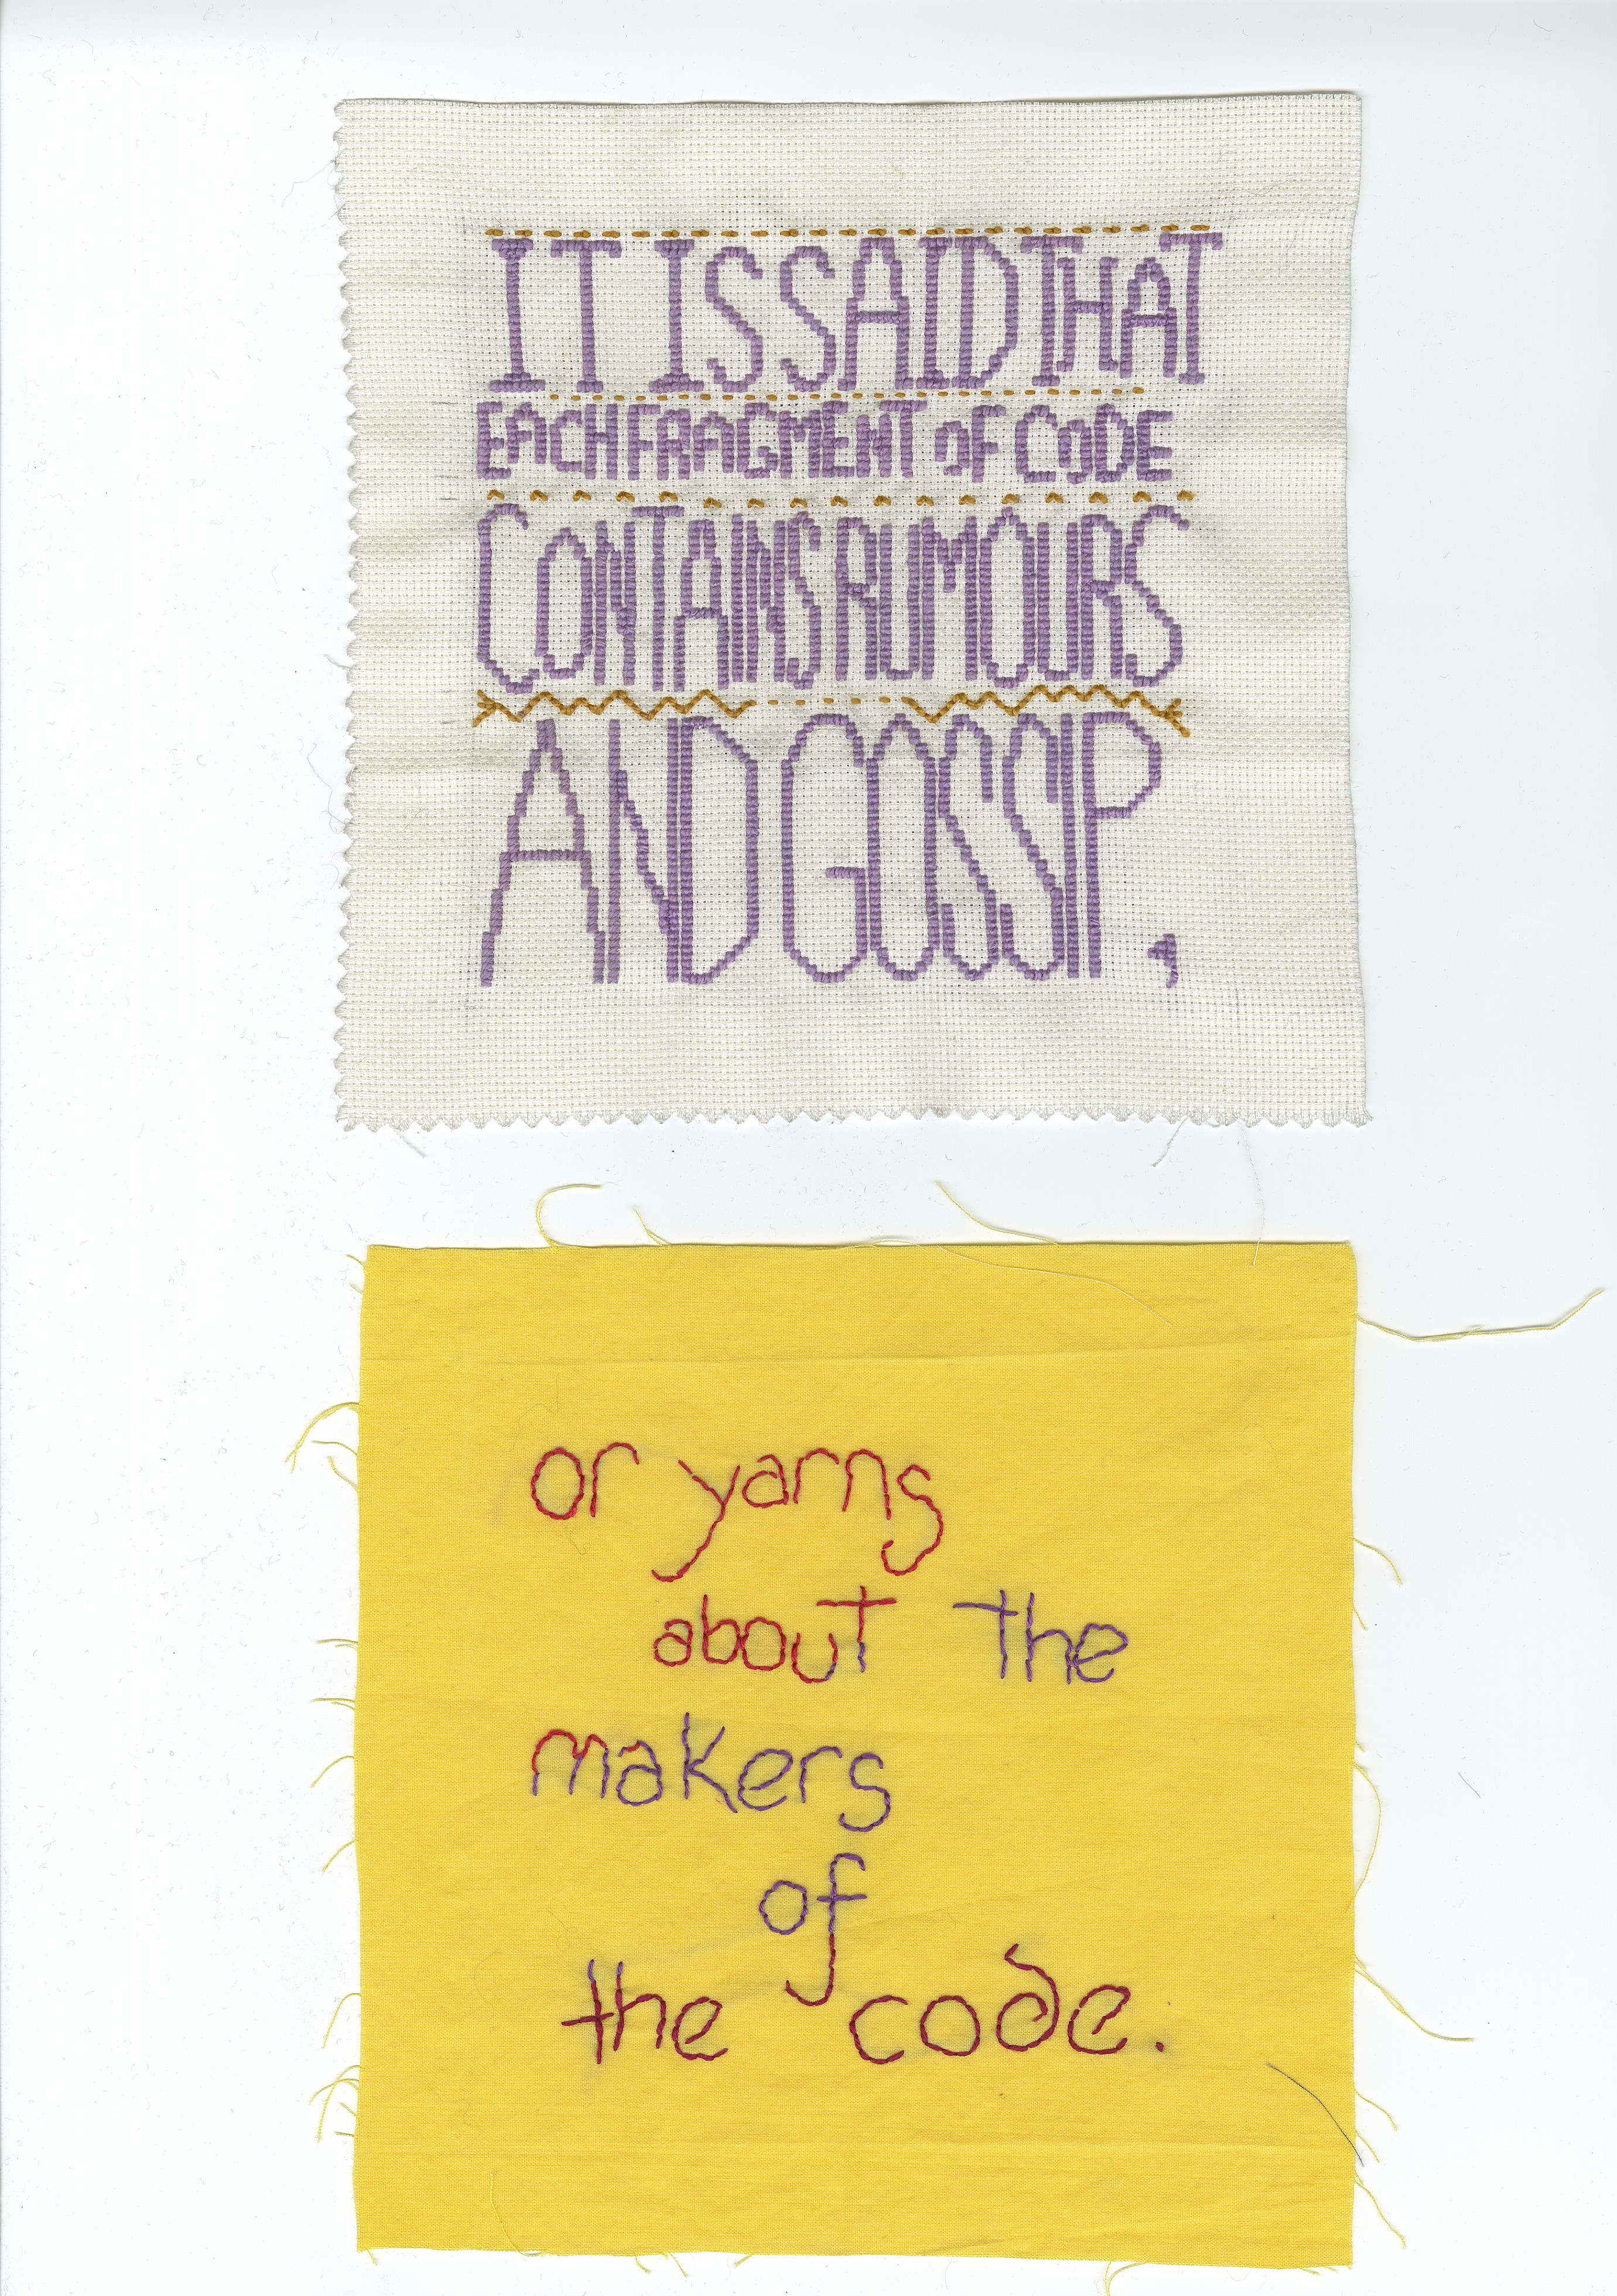 IT IS SAID THAT
EACH FRAGMENT OF CODE
CONTAINS RUMOURS
AND GOSSIP,
or yarns
about the
makers
of
the code.